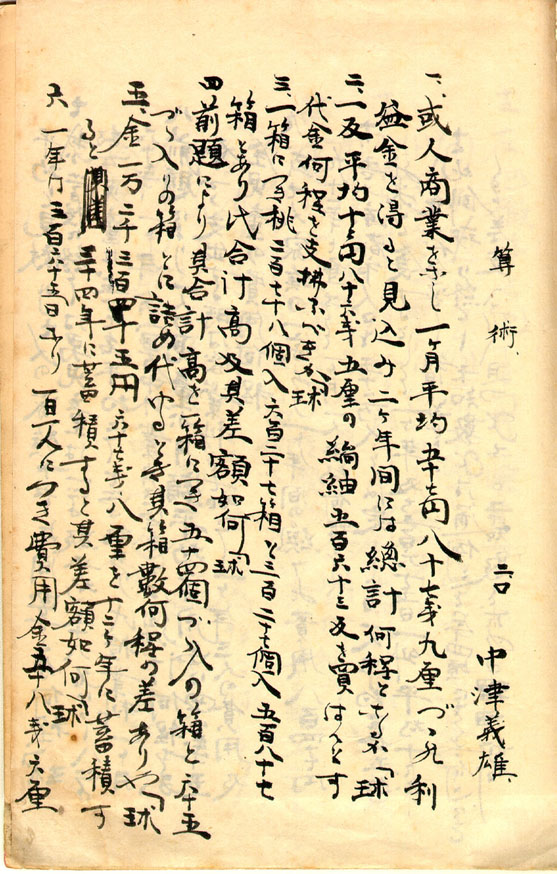 算術
二〇 中津義雄
一、或人商業をなし一ヶ月平均五十七円八十七銭九厘づゝ利
益金を得ると見込み二ヶ年間には總計何程となるか「球
二、一反平均十二円八十三銭五厘の縞紬五百六十三反を買はんとす
代金何程を支拂ふべきか「球
三、一箱につき桃二百七十八個入六百二十七箱と三百二十七個入五百八十七
箱とあり此合計高及其差額如何「球
四、前題により其合計高を一箱につき五十四個づゝ入の箱と六十五
づゝ入りの箱とに詰め代ゆるとき其箱數何程の差ありや「球
五、金一万二千三百四十五円六十七銭八厘を十二ヶ年に蓄積す
ると 三十四年に蓄積すると其差額如何「球
六、一年は三百六十五日なり一日一人につき費用金五十八銭六厘